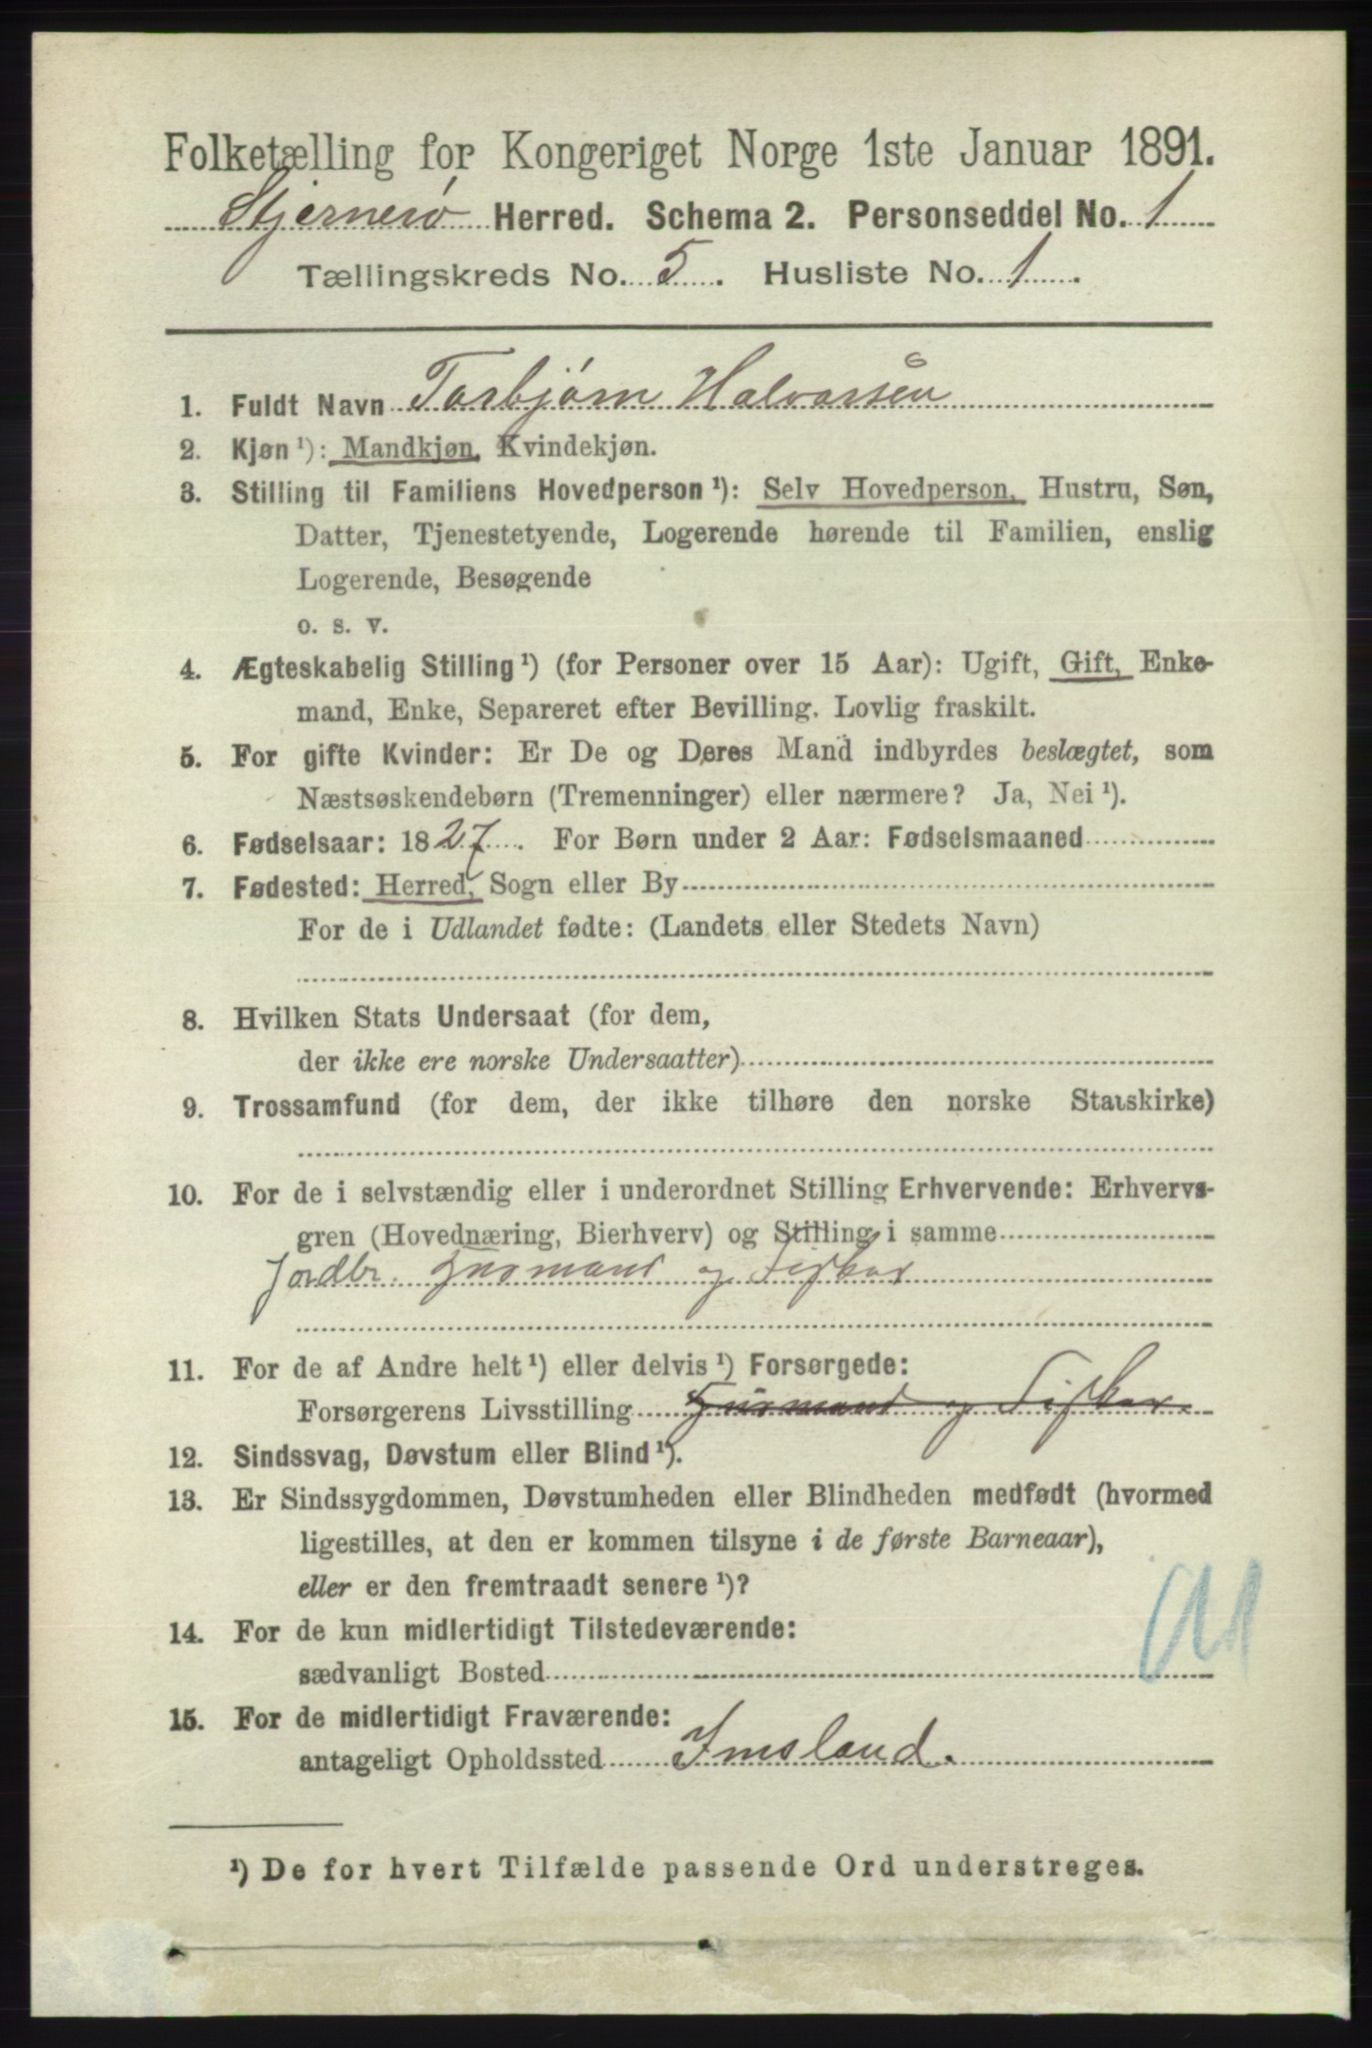 Folketælling for Kongeriget Norge 1ste Januar 1891.
Stjernerö Herred. Schema 2. Personseddel No. 1
Tællingskreds No. 5. Husliste No. 1.
1. Fuldt Navn Torbjörn Halvorsen
2. Kjøn ¹): Mandkjøn, Kvindekjøn.
3. Stilling til Familiens Hovedperson ¹): Selv Hovedperson, Hustru, Søn,
Datter, Tjenestetyende, Logerende hørende til Familien, enslig
Logerende, Besøgende
o. s. v.
4. Ægteskabelig Stilling ¹) (for Personer over 15 Aar): Ugift, Gift, Enke-
mand, Enke, Separeret efter Bevilling. Lovlig fraskilt.
5. For gifte Kvinder: Er De og Deres Mand indbyrdes beslægtet, som
Næstsøskendebørn (Tremenninger) eller nærmere? Ja, Nei ¹).
6. Fødselsaar: 1827. For Børn under 2 Aar: Fødselsmaaned
7. Fødested: Herred, Sogn eller By
For de i Udlandet fødte: (Landets eller Stedets Navn)
8. Hvilken Stats Undersaat (for dem,
der ikke ere norske Undersaatter)
9. Trossamfund (for dem, der ikke tilhøre den norske Statskirke)
10. For de i selvstændig eller i underordnet Stilling Erhvervende: Erhvervs-
gren (Hovednæring, Bierhverv) og Stilling i samme
Jordbr. Husmand og Fisker
11. For de af Andre helt ¹) eller delvis ¹) Forsørgede:
Forsørgerens Livsstilling Husmand og Fisker.
12. Sindssvag, Døvstum eller Blind ¹).
13. Er Sindssygdommen, Døvstumheden eller Blindheden medfødt (hvormed
ligestilles, at den er kommen tilsyne i de første Barneaar),
eller er den fremtraadt senere ¹)?
14. For de kun midlertidigt Tilstedeværende:
sædvanligt Bosted
15. For de midlertidigt Fraværende:
antageligt Opholdssted Imsland.
¹) De for hvert Tilfælde passende Ord understreges.